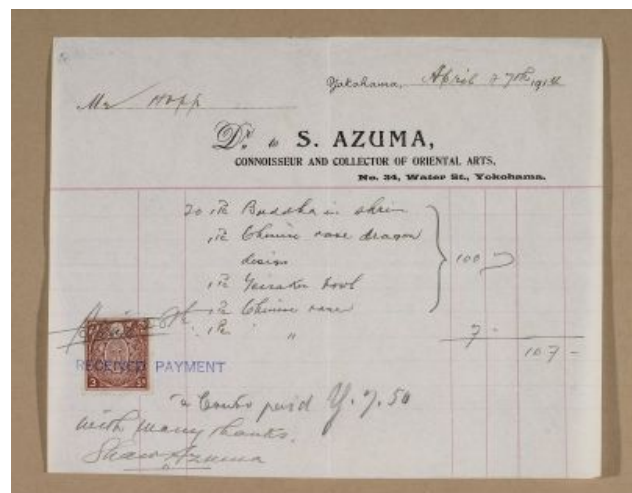 Yokohama, April 27th 1914
Mr Hopp
Dr. to S. AZUMA,
CONNOISSEUR AND COLLECTOR OF ORIENTAL ARTS.
No. 34, Water St., Yokohama.
Buddha in shrine
Chinese vase dragon
design 100
bowl
Chinese vase
" 7 -
107 -
RECEIVED PAYMENT
3 3
paid Y. 7.50
with many thanks.
Azuma